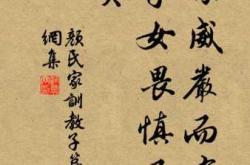 威嚴而
子女畏慎
顏氏家訓教子篇
網集